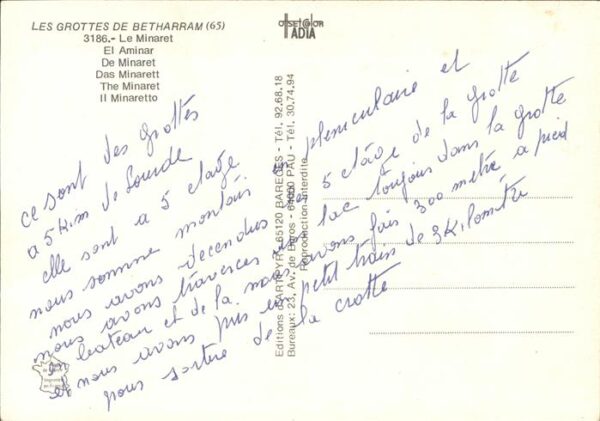 LES GROTTES DE BETHARRAM (65)
3186.- Le Minaret
El Aminar
De Minaret
Das Minarett
The Minaret
Il Minaretto
OFFSET COLOR
TADIA
Editions D'ART PYR - 65120 BAREGES - Tél. 92.68.18
Bureaux: 23, Av. de Buros - 64000 PAU - Tél. 30.74.94
Reproduction Interdite
ce sont des grottes
a 5 k.m de Lourde
elle sont a 5 etage
nous somme montais en pleniculaire et
nous avons decendus les 5 etage de la grotte
nous avons traverces un lac toujours dans la grotte
en bateau et de la nous avons fais 300 metre a pied
et nous avons pris le petit train de 3 Kilomètre
pour sortire de la crotte